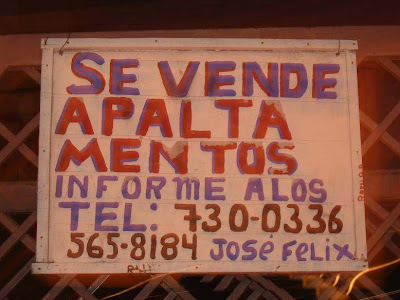 SE VENDE
APALTA
MENTOS
INFORME ALOS
TEL: 730-0336
565-8184 JOSÉ FELIX